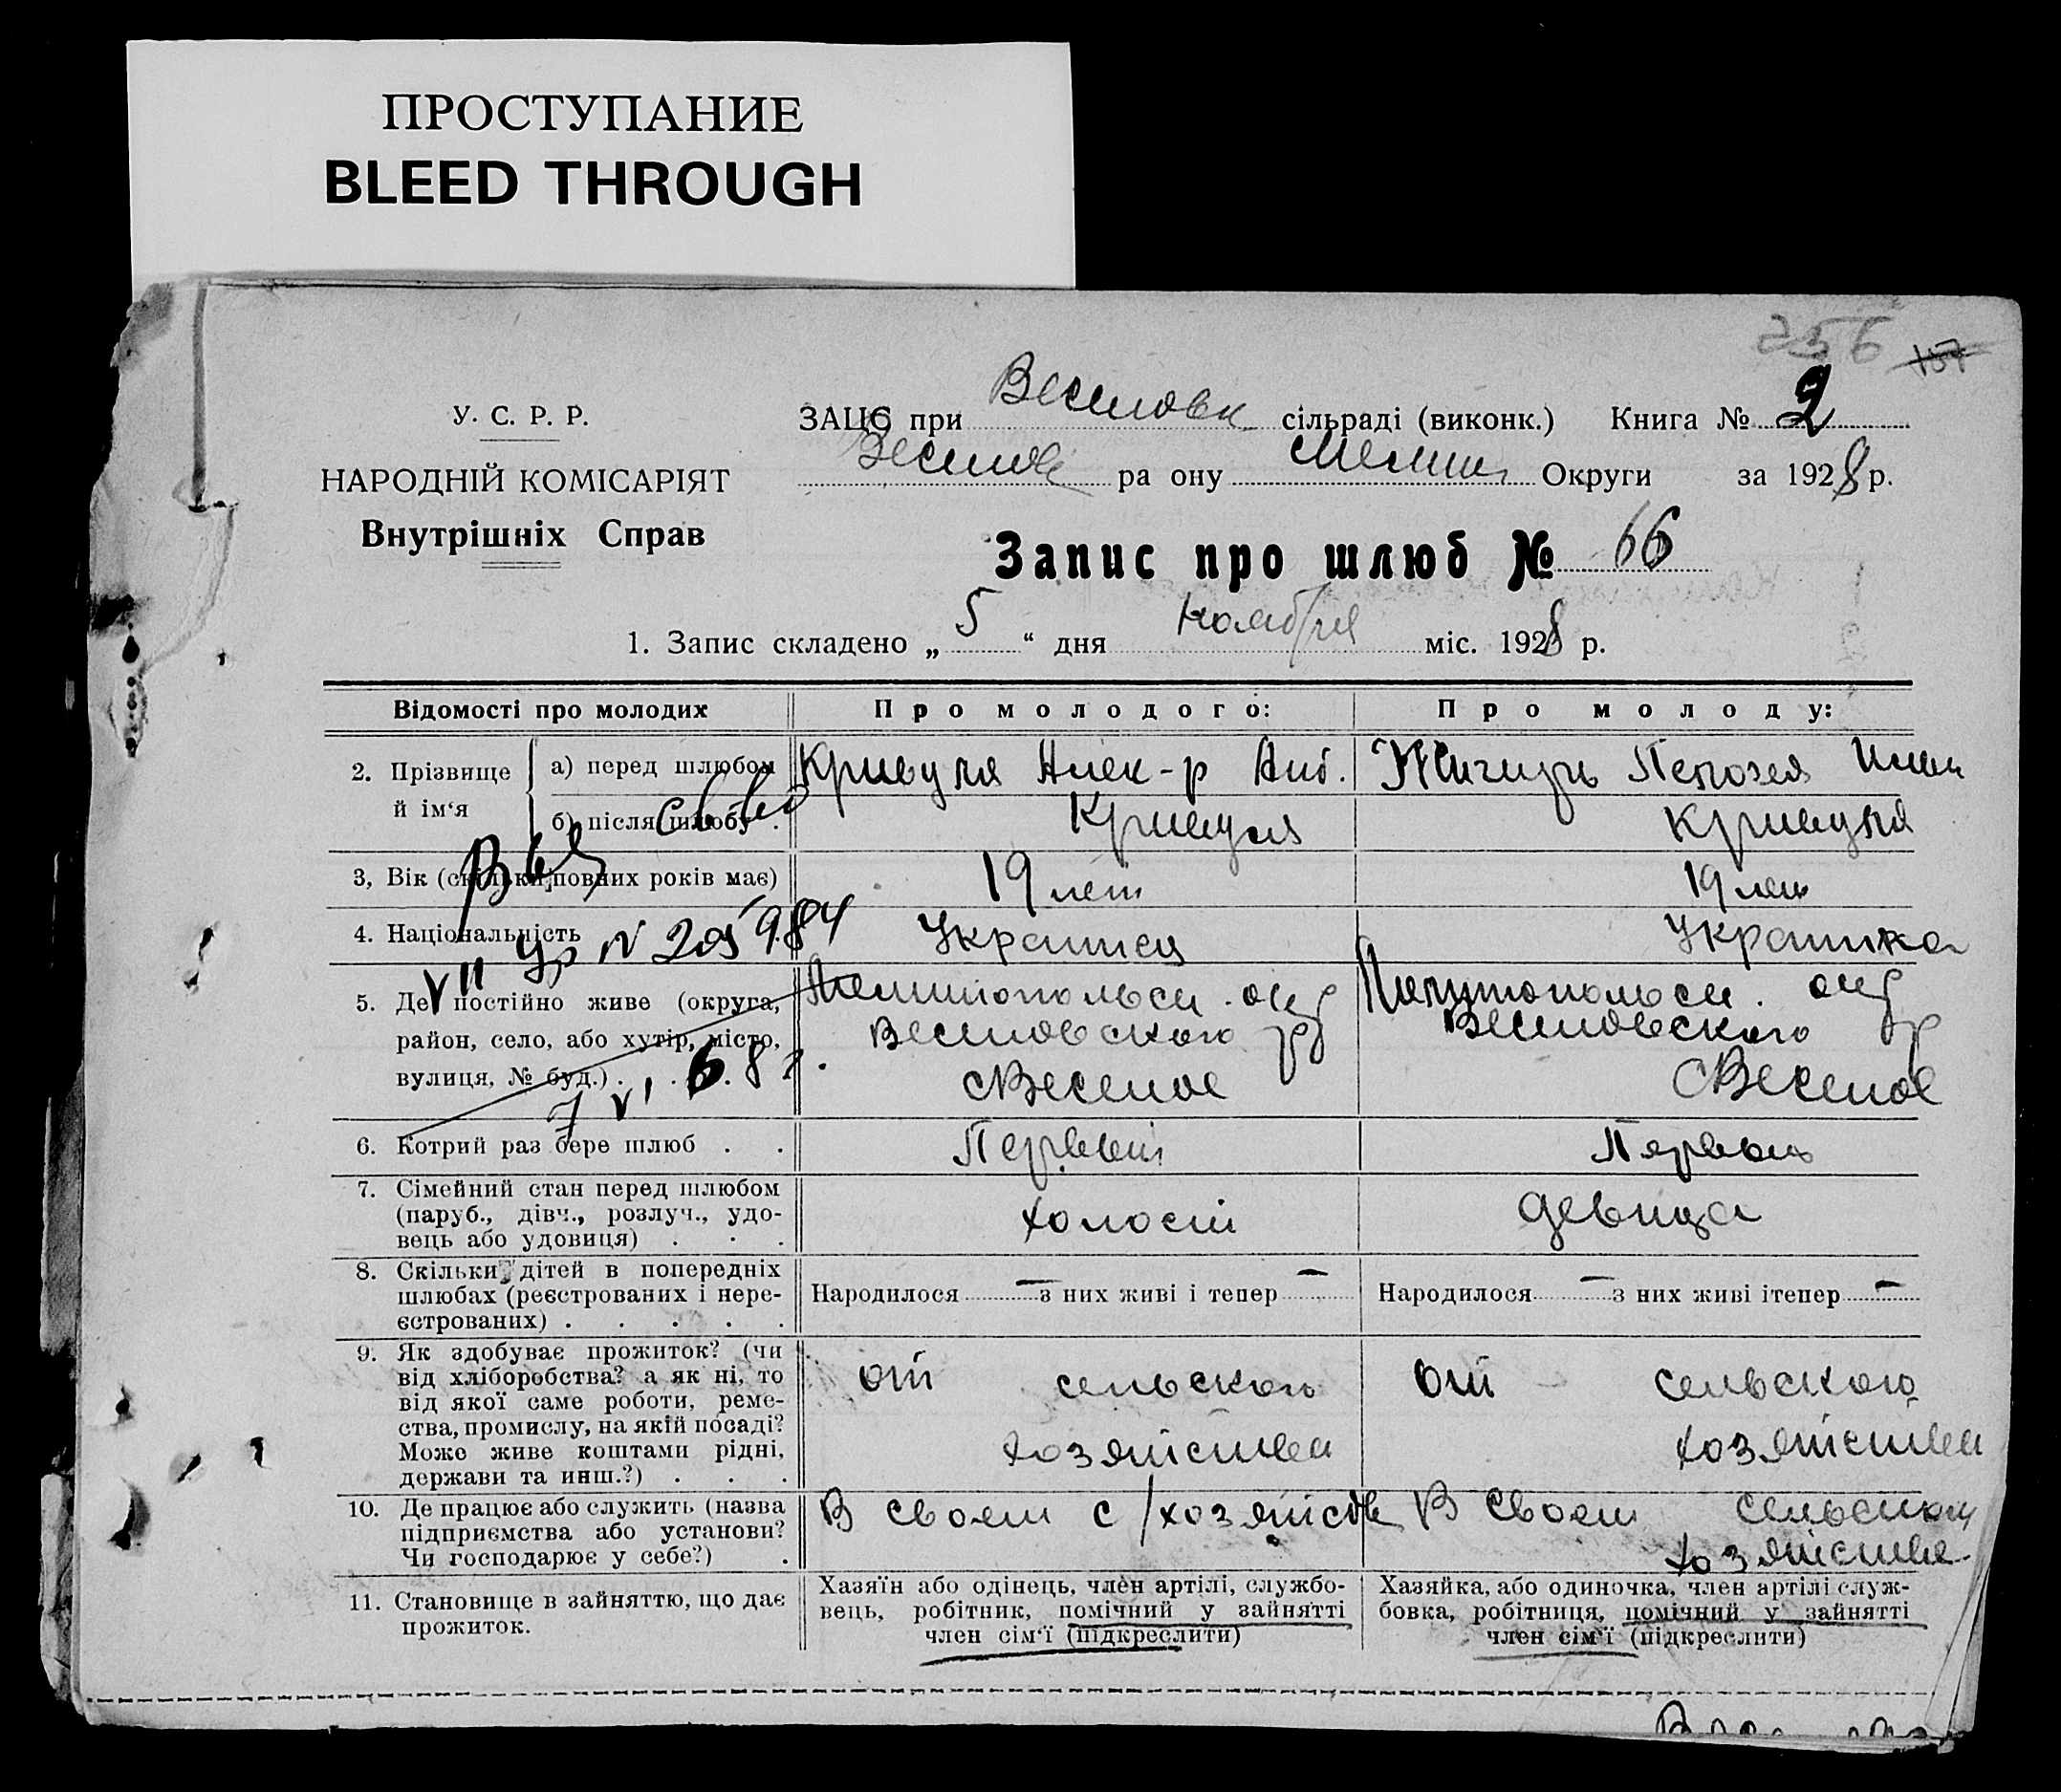 ПРОСТУПАНИЕ
BLEED THROUGH
256 157
У. С. Р. Р.
НАРОДНІЙ КОМІСАРІЯТ
Внутрішніх Справ
ЗАЦС при Веселовск сільраді (виконк.) Книга № 2
Веселов ра ону Мелит Округи за 1928 р.
Запис про шлюб № 66
1. Запис складено „ 5 “ дня ноября міс. 1928 р.
Відомості про молодих
Про молодого:
Про молоду:
2. Прізвище й ім‘я
а) перед шлюбом
Кривуля Алек-р Анд.
Пелагея
б) після шлюбу .
Кривуля
Кривуля
3, Вік (скільки повних років має)
19 лет
19 лет
4. Національність
Украинец
Украинка
5. Де постійно живе (округа,
район, село, або хутір, місто,
вулиця, № буд.) . . . .
Мелитопольск. окр
Веселовского р
с Веселое
Мелитопольск. окр
Веселовского р
с Веселое
Выд св во
VII Ур № 205984
7 VI 68 г.
6. Котрий раз бере шлюб . .
Первый
Первый
7. Сімейний стан перед шлюбом
(паруб., дівч., розлуч., удо-
вець або удовиця) . . .
холост
девица
8. Скільки дітей в попередніх
шлюбах (реєстрованих і нере-
єстрованих) . . . . .
Народилося — з них живі і тепер —
Народилося — з них живі ітепер —
9. Як здобуває прожиток? (чи
від хліборобства? а як ні, то
від якої саме роботи, реме-
ства, промислу, на якій посаді?
Може живе коштами рідні,
держави та инш.?) . . .
от сельского
хозяйства
от сельского
хозяйства
10. Де працює або служить (назва
підприємства або установи?
Чи господарює у себе?) .
В своем с/хозяйстве
В своем сельском
хозяйстве
11. Становище в зайняттю, що дає
прожиток.
Хазяїн або одінець, член артілі, службо-
вець, робітник, помічний у зайнятті
член сім‘ї (підкреслити)
Хазяйка, або одиночка, член артілі служ-
бовка, робітниця, помічний у зайнятті
член сім‘ї (підкреслити)